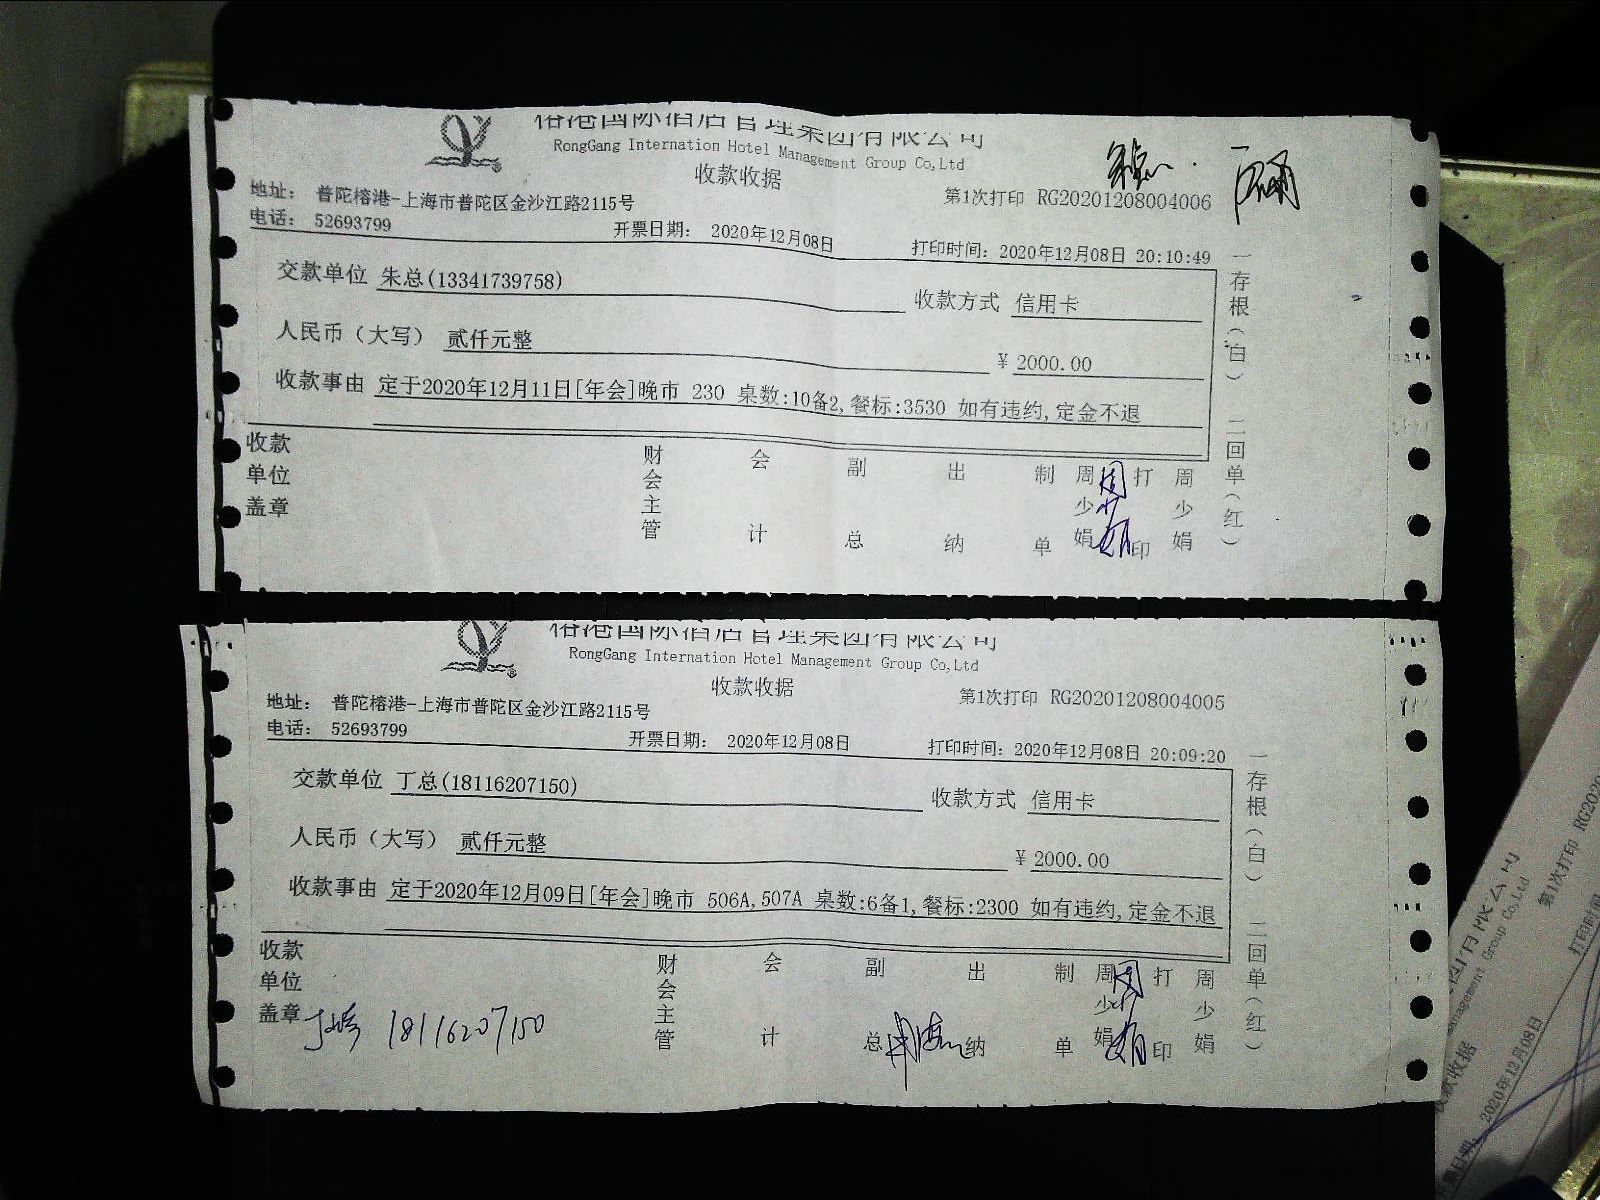 榕港国际酒店管理集团有限公司
RongGang Internation Hotel Management Group Co,Ltd
收款收据
地址： 普陀榕港-上海市普陀区金沙江路2115号
第1次打印 RG20201208004006
电话： 52693799
开票日期： 2020年12月08日
打印时间：2020年12月08日 20:10:49
交款单位 朱总(13341739758)
收款方式 信用卡
人民币（大写） 贰仟元整
¥ 2000.00
收款事由 定于2020年12月11日[年会]晚市 230 桌数:10备2,餐标:3530 如有违约,定金不退
收款单位盖章
财会主管
会计
副总
出纳
制单
周少娟
周少娟
打印
周少娟
一存根（白） 二回单（红）
榕港国际酒店管理集团有限公司
RongGang Internation Hotel Management Group Co,Ltd
收款收据
地址： 普陀榕港-上海市普陀区金沙江路2115号
第1次打印 RG20201208004005
电话： 52693799
开票日期： 2020年12月08日
打印时间：2020年12月08日 20:09:20
交款单位 丁总(18116207150)
收款方式 信用卡
人民币（大写） 贰仟元整
¥ 2000.00
收款事由 定于2020年12月09日[年会]晚市 506A,507A 桌数:6备1,餐标:2300 如有违约,定金不退
收款单位盖章
18116207150
财会主管
会计
副总
出纳
制单
周少娟
周少娟
打印
周少娟
一存根（白） 二回单（红）
第1次打印 RG202
打印时间
Group Co,Ltd
收款收据
2020年12月08日